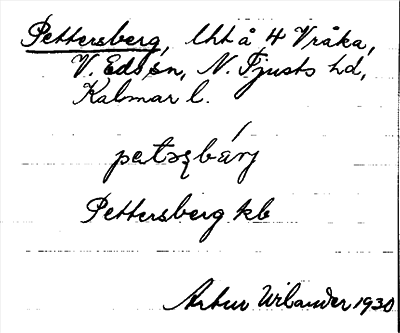 Pettersberg, lht å 4 Vråka,
V. Eds sn, N. Tjusts hd,
Kalmar l.
Pettersberg kb
Artur Wilander 1930